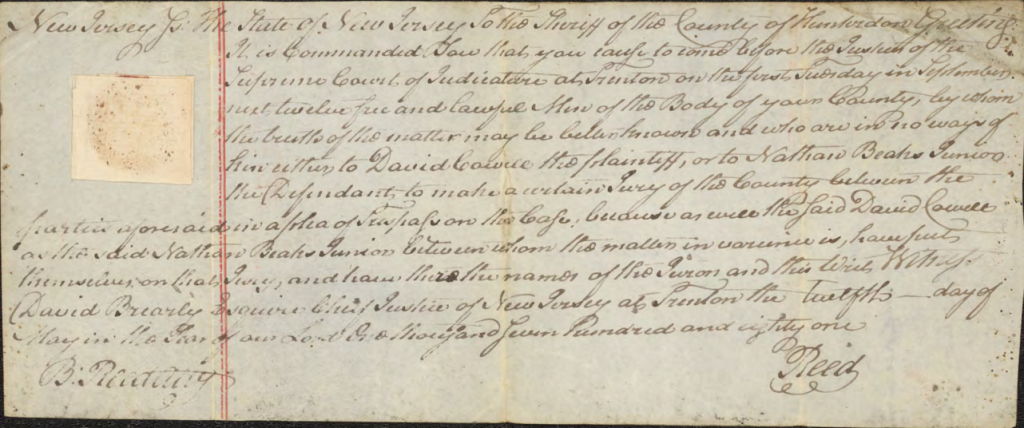 New Jersey Ss. The State of New Jersey To the Sheriff of the County of Hunterdon Greeting
It is Commanded You that you cause to come before the Justices of the
Supreme Court of Judicature at Trenton on the first Tuesday in September
next twelve free and lawful Men of the Body of your County, by whom
the truth of the matter may be better known and who are in no ways of
kin either to David Cowell the plaintiff, or to Nathan Beaks Junior
the Defendant, to make a certain Jury of the County between the
parties aforesaid in a plea of Trespass on the Case, because as well the said David Cowell
as the said Nathan Beaks Junior between whom the matter in variance is, have put
themselves on that Jury, and have there the names of the Jurors and this Writ Witness
David Brearly Esquire Chief Justice of New Jersey at Trenton the twelfth day of
May in the Year of our Lord One thousand seven hundred and eighty one
Reed
B: